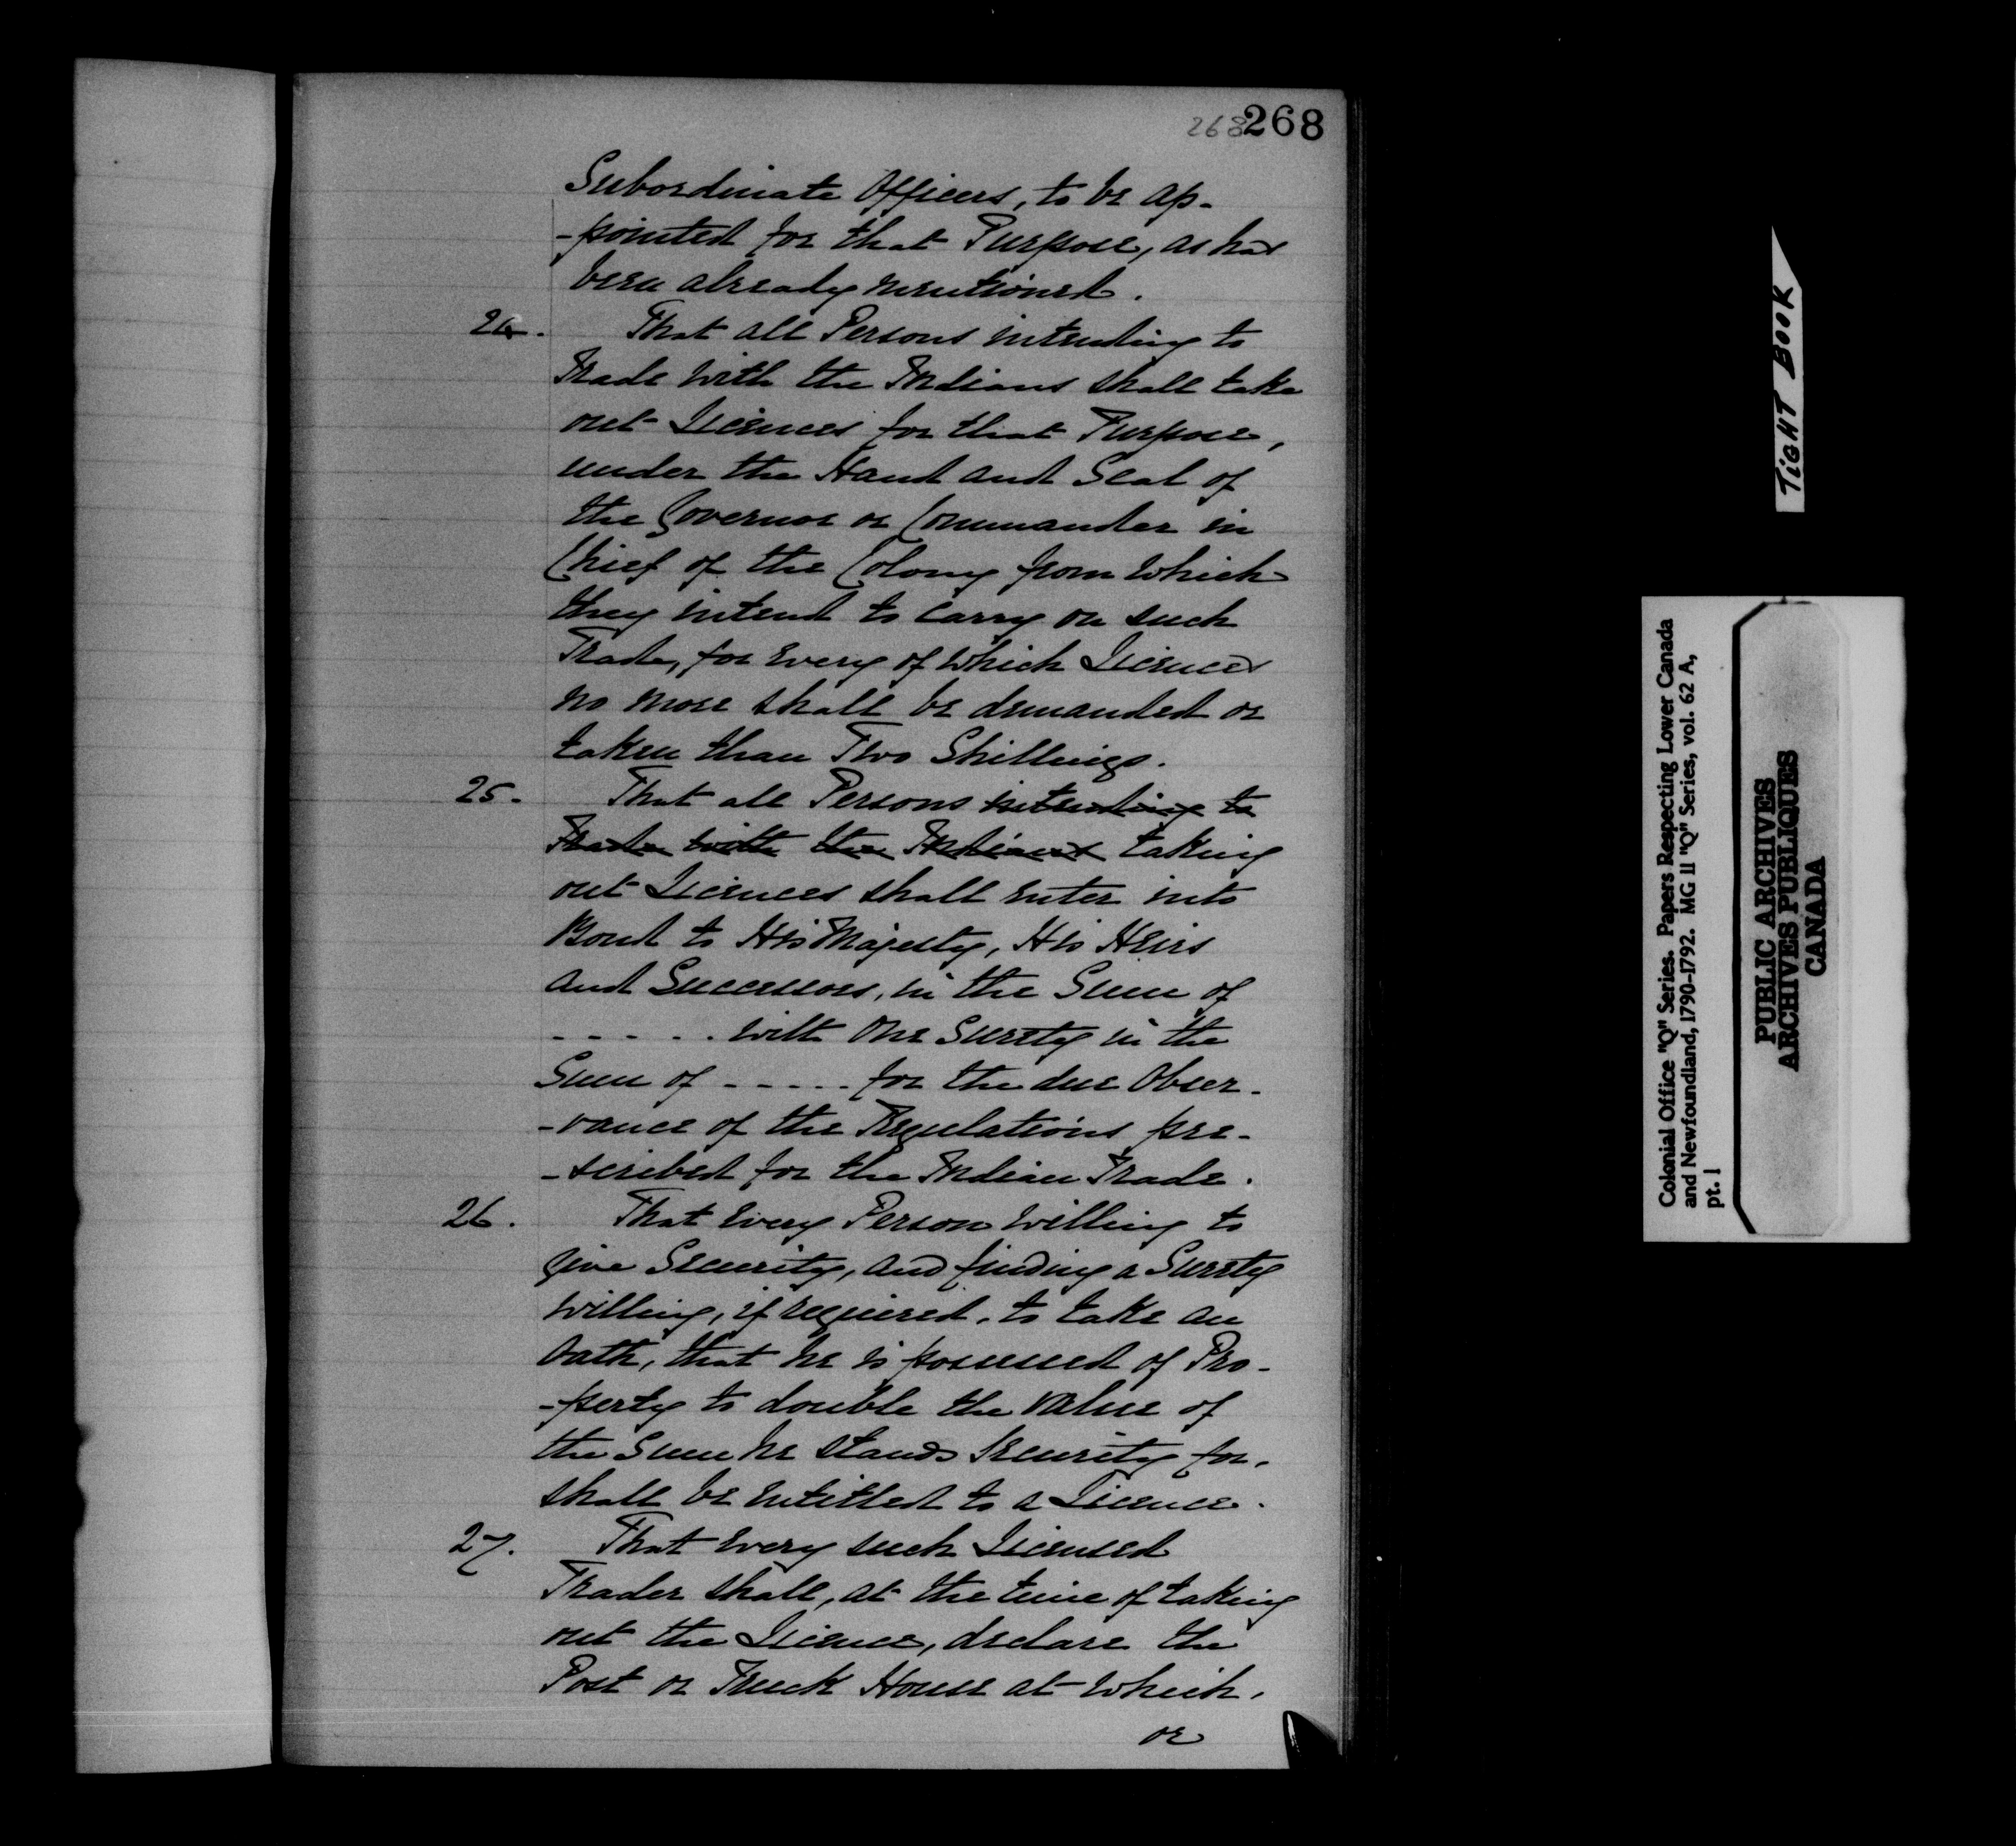 268 268
Subordinate Officers, to be ap-
-pointed for that Purpose, as has
been already mentioned.
24. That all Persons intending to
Trade with the Indians shall take
out Licences for that Purpose,
under the Hand and Seal of
the Governor or Commander in
Chief of the Colony from which
they intend to carry on such
Trade, for every of which Licences
no more shall be demanded or
taken than Two Shillings.
25. That all Persons intending to
Trade with the Indians taking
out Licences shall enter into
Bond to His Majesty, His Heirs
and Successors, in the Sum of
- - - - - . with One Surety in the
Sum of - - - - - for the due Obser-
-vance of the Regulations pre-
-scribed for the Indian Trade.
26. That every Person willing to
give Security, and finding a Surety
willing, if required, to take an
Oath, that he is possessed of Pro-
-perty to double the value of
the Sum he stands Security for,
shall be entitled to a Licence.
27. That every such Licensed
Trader shall, at the time of taking
out the Licence, declare the
Post or Truck House at which,
or
TIGHT BOOK
Colonial Office "Q" Series. Papers Respecting Lower Canada
and Newfoundland, 1790-1792. MG 11 "Q" Series, vol. 62 A,
pt. 1
PUBLIC ARCHIVES
ARCHIVES PUBLIQUES
CANADA